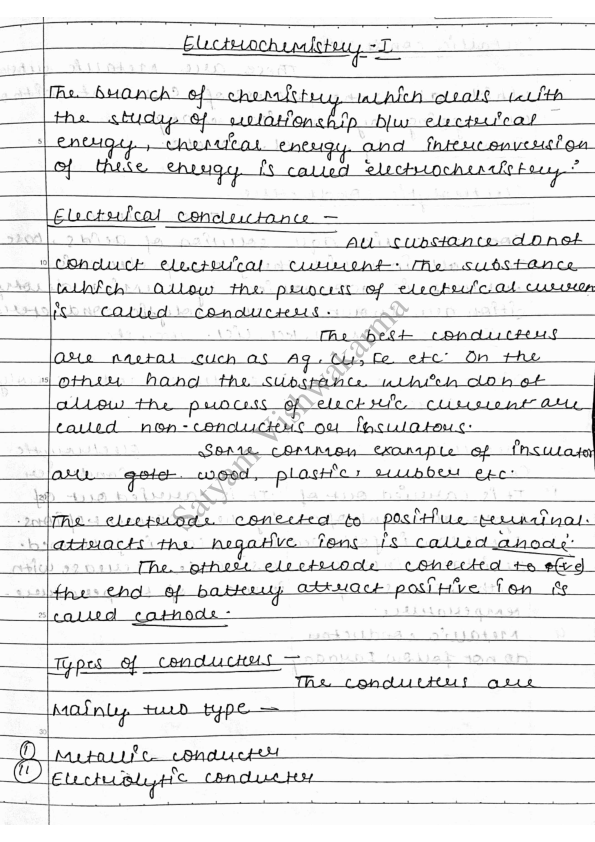 Electrochemistry-I
The branch of chemistry which deals with
the study of relationship b/w electrical
energy, chemical energy and interconversion
of these energy is called electrochemistry.
Electrical conductance -
All substance do not
conduct electrical current. The substance
which allow the process of electrical current
is called conducters.
The best conducters
are metal such as Ag, Cu, Fe etc. On the
other hand the substance which do not
allow the process of electric current are
called non-conducters or insulators.
Some common example of insulator
are gold wood, plastic, rubber etc.
The electrode conected to positive terminal.
attracts the negative ions is called anode.
The other electrode conected to (-ve)
the end of battery attract positive ion is
called cathode.
Types of conducters -
The conducters are
Mainly two type -
(i) Metallic conducter
(ii) Electrolytic conducter
Satyam Vishwakarma